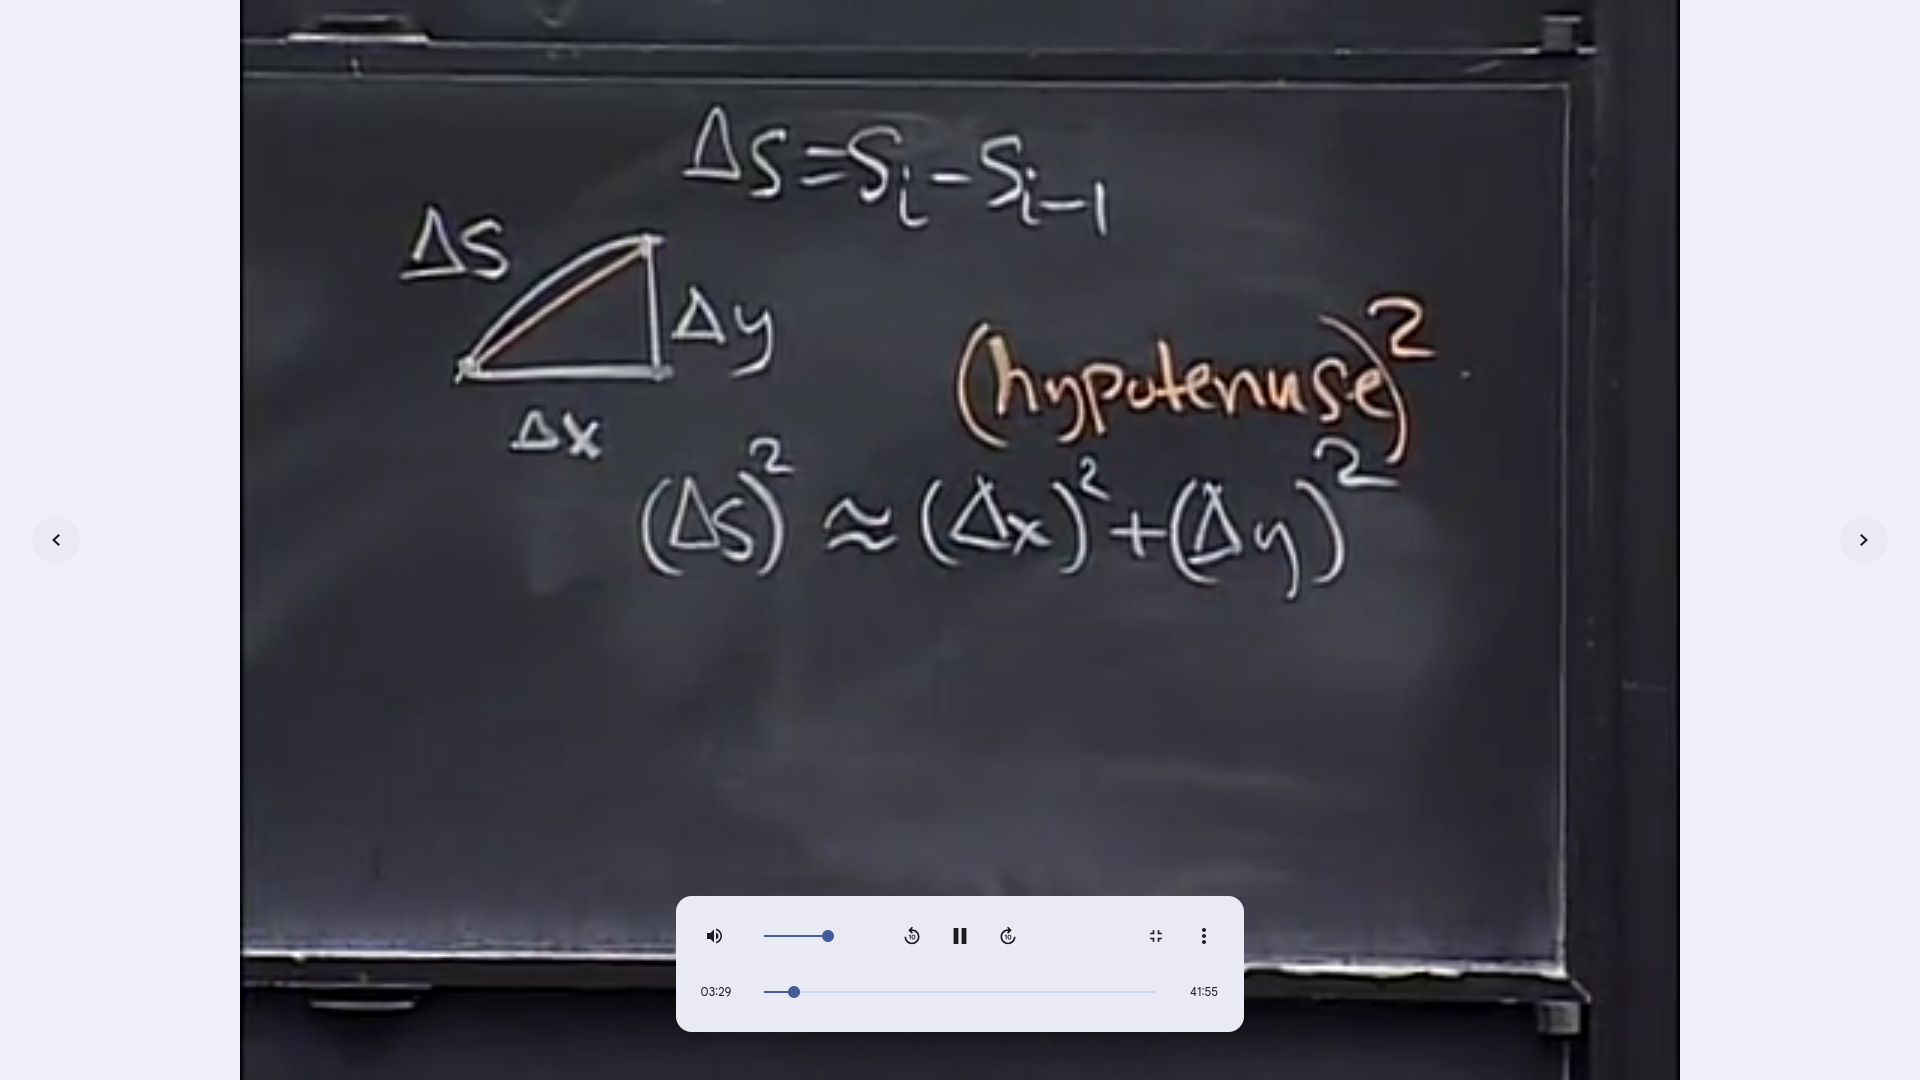 Δs = sᵢ - sᵢ₋₁
Δs
Δy
(hypotenuse)²
Δx
(Δs)² ≈ (Δx)² + (Δy)²
10
10
03:29
41:55